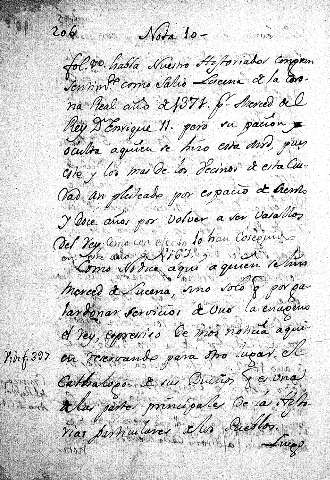 206 Nota 10-
fol. habla Nuestro Historiador
como Salio Lucena de la Coro-
na Real año de 1371. pr Merced de el
Rey Dn Enrique II. pero su pacion
oculta aquien se hizo esta Mrd, pues
este y los mas de los Vecinos de esta Ciu-
dad an pleiteado por espacio de ciento
y doce años por volver a ser vasallos
del rey, como con efecto lo han
en este año de 1767.
Como No dice aqui aquien se hizo
merced de Lucena, sino solo q por ga-
lardonar servicios de uno la enageno
el rey, es preciso de mos noticia aqui
en reservando para otro lugar. el
Cathalogo de sus Dueños q es una
de las partes principales de la Histo-
rias particulares de los Pueblos.
Luego